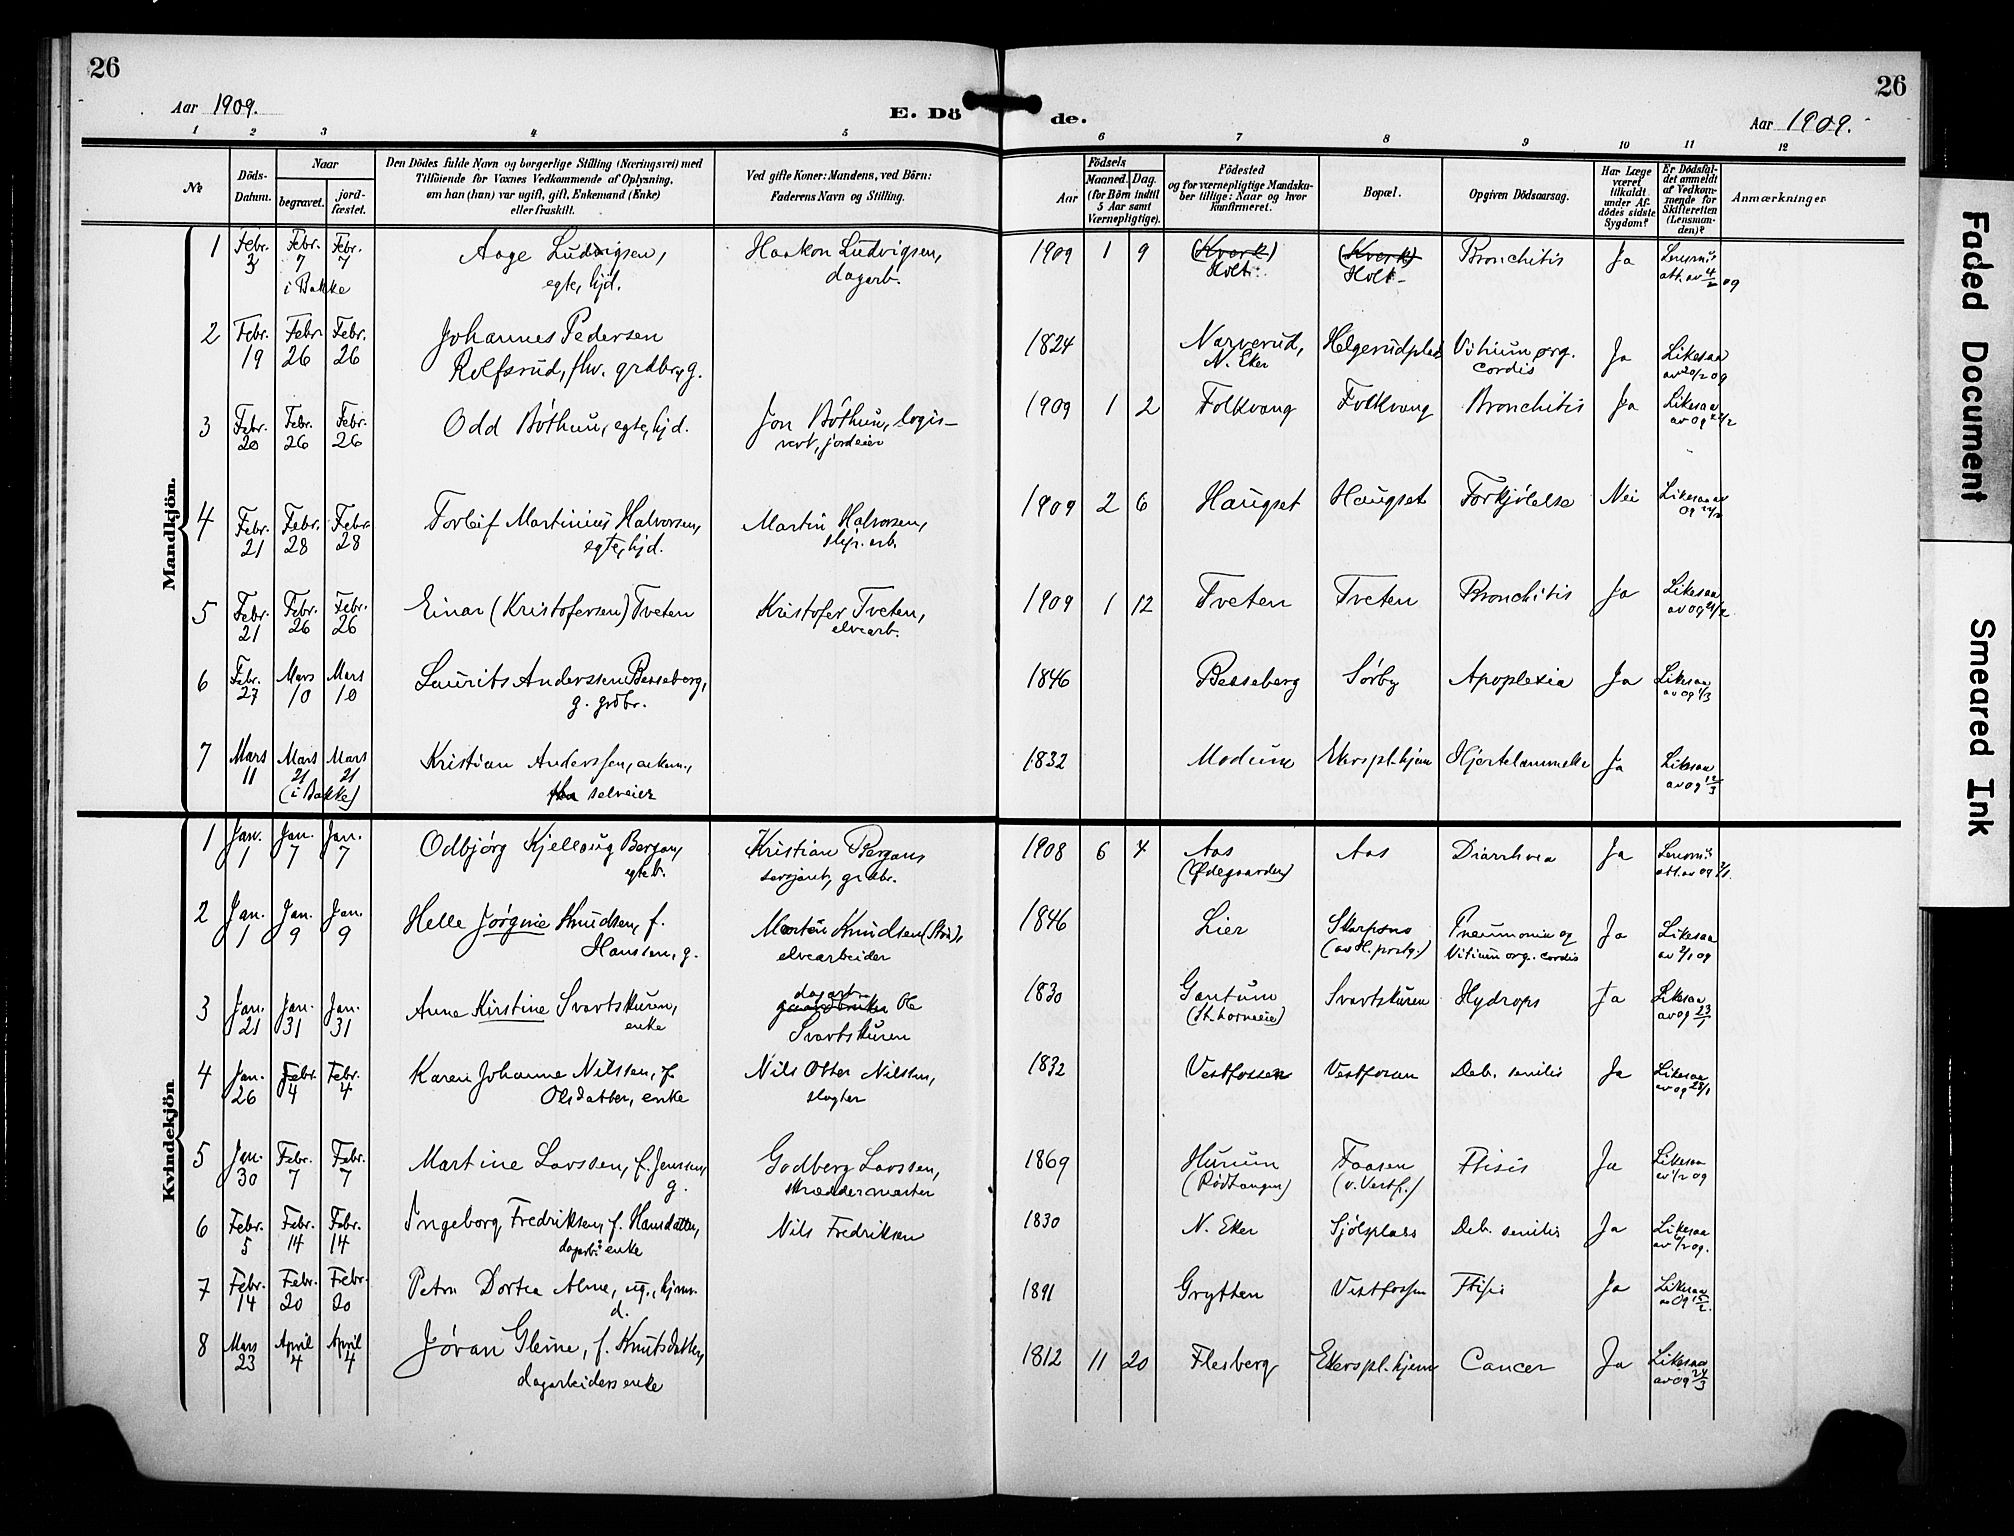 26
26
Aar 1909.
E. Dö
de.
Aar 1909.
1 2 3 4 5 6 7 8 9 10 11 12
№
Döds-
Datum.
Naar
begravet.
jord-
fæstet.
Den Dödes fulde Navn og borgerlige Stilling (Næringsvei) med
Tilföiende for Voxnes Vedkommende af Oplysning,
om han (hun) var ugift, gift, Enkemand (Enke)
eller fraskilt.
Ved gifte Koner: Mandens, ved Börn:
Faderens Navn og Stilling.
Aar
Födsels
Maaned. Dag.
(for Börn indtil
5 Aar samt
Værnepligtige).
Födested
og for værnepligtige Mandska-
ber tillige: Naar og hvor
konfirmeret.
Bopæl.
Opgiven Dödsaarsag.
Har Læge
været
tilkaldt
under Af-
dödes sidste
Sygdom?
Er Dödsfal-
det anmeldt
af Vedkom-
mende for
Skifteretten
(Lensman-
den)?
Anmærkninger
Mandkjön.
1 Febr. 3 Febr. 7 Febr. 7 Aage Ludvigsen, Haakon Ludvigsen, 1909 1 9 (Kverk) (Kverk) Bronchitis Ja
i Bakke egte, hjd. dagarb. Holt Holt att. av 4/2 09
2 Febr. 19 Febr. 26 Febr. 26 Johannes Pedersen 1824 Narverud, Helgerudplads Vitium org. Ja Likesaa
Rolfsrud, fhv. grdbr., g. N. Eker cordis av 20/2 09
3 Febr. 20 Febr. 26 Febr. 26 Odd Böthun, egte, hjd. Jon Böthun, logis- 1909 1 2 Folkvang Folkvang Bronchitis Ja Likesaa
vert, jordeier av 09 22/2
4 Febr. 21 Febr. 28 Febr. 28 Torleif Martinius Halvorsen, Martin Halvorsen, 1909 2 6 Haugset Haugset Forkjölelse Nei Likesaa av
egte, hjd. slip. arb. 09 22/2
5 Febr. 21 Febr. 26 Febr. 26 Einar (Kristofersen) Tveten Kristofer Tveten, 1909 1 12 Tveten Tveten Bronchitis Ja Likesaa
elvearb. av 09
6 Febr. 27 Mars 10 Mars 10 Laurits Anderssen Besseberg, 1846 Besseberg Sørby Apoplexia Ja Likesaa
g. grdbr. av 09 1/3
7 Mars 11 Mars 21 Mars 21 Kristian Anderssen, enkem., 1832 Modum Ekers pl.hjem Hjertelammelse Ja Likesaa
(i Bakke) selveier av 09 12/3
Kvindekjön
1 Jan. 1 Jan. 7 Jan. 7 Odbjørg Kjellaug Bergan, Kristian Bergan, 1908 6 4 Aas Aas Diarrhoea Ja
egteb. sersjant, grdbr. (Ødegaarden) att. av 09 2/1.
2 Jan. 1 Jan. 9 Jan. 9 Helle Jørgine Knudsen, f. Martin Knudsen 1846 Lier Skarpsno Pneumonia og Ja Likesaa
Hanssen, g. elvearbeider Vitium org. cordis av 2/1 09
3 Jan. 21 Jan. 31 Jan. 31 Anne Kirstine Svartskuren, dagarb. gaardbruker Ole 1830 Gantum Svartskuren Hydrops Ja Likesaa
enke Svartskuren av 09 23/1
4 Jan. 26 Febr. 4 Febr. 4 Karen Johanne Nilssen, f. Nils Otter Nilssen, 1832 Vestfossen Vestfossen Deb. senilis Ja Likesaa
Olsdatter, enke slagter av 09 28/1
5 Jan. 30 Febr. 7 Febr. 7 Martine Larssen, f. Jenssen, Godberg Larssen, 1869 Hurum Faasen Ftisis Ja Likesaa
g. skræddermester (Rødtangen) (v. Vestf.) av 1/2 09
6 Febr. 5 Febr. 14 Febr. 14 Ingeborg Fredriksen, f. Hansdatter, Nils Fredriksen 1830 N. Eker Sjölsplads Deb. senilis Ja Likesaa
dagarb. enke av 6/2 09.
7 Febr. 14 Febr. 20 Febr. 20 Petra Dortea Alme, ug., hjem. 1891 Grytten Vestfossen Ftisis Ja Likesaa
d. av 09 15/2.
8 Mars 23 April 4 April 4 Jøran Gleine, f. Knutsdatter, 1812 11 20 Flesberg Ekers pl.hjem Cancer Ja Likesaa
dagarbeiders enke av 09 24/3
Faded Document
Smeared Ink